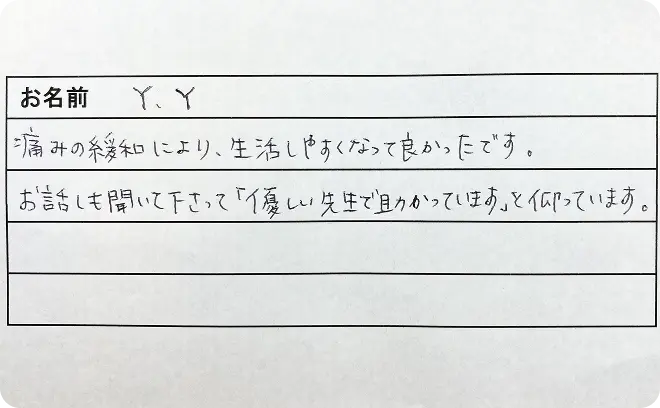 お名前 Y、Y
痛みの緩和により、生活しやすくなって良かったです。
お話しも聞いて下さって「優しい先生で助かっています」と仰っています。